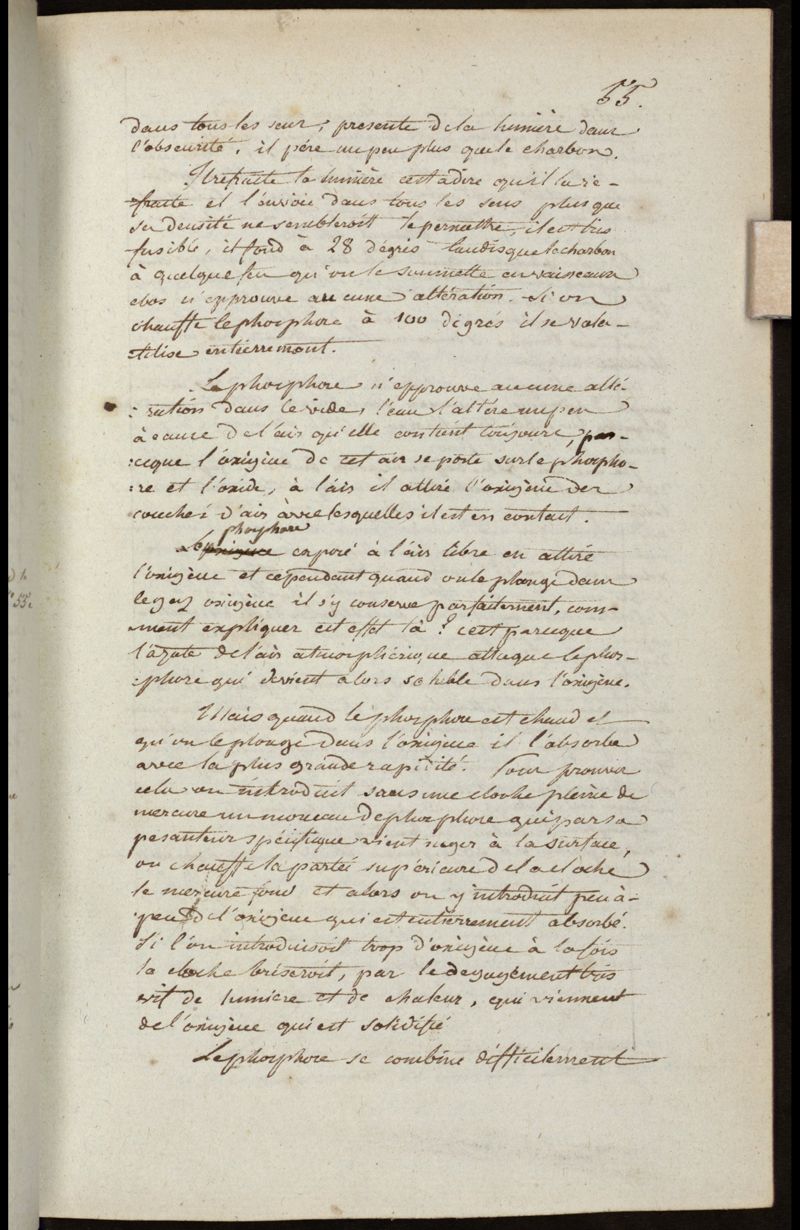 55.
dans tous les seur, presente de la lumière dans
l'obscurité, il pése un peu plus que le charbon.
Il refracte la lumière cest adire qu'il la re-
fracte et l'envoie dans tous les sens plus que
sa densité ne sembleroit le permettre, il est tres
fusible, il fond à 28 dégrès tandisque le charbon
à quelque feu qu'on le soumette en vaisseaux
clos n'epprouve aucune altération. Si on
chauffe le phosphore à 100 dégrés il se vola-
tilise entierrement.
Le phosphore n'epprouve aucune alté-
:ration dans le vide, l'eau l'altére un peu
à cause de l'air qu'elle contient toujours, par-
:ceque l'oxigène de cet air se porte sur le phospho-
:re et l'oxide, à l'air il attire l'oxigène des
couches d'air avec lesquelles il est en contact.
phosphore
Le exposé à l'air libre en attire
l'oxigène et cependant quand on le plonge dans
le gaz oxigène il s'y conserve parfaitement, com-
ment expliquer cet effet là ? c'est parceque
l'azote de l'air atmosphérique attaque le phos-
:phore qui devient alors soluble dans l'oxigène.
Mais quand le phosphore est chaud et
qu'on le plonge dans l'oxigène il l'absorbe
avec la plus grande rapidité. Pour prouver
cela on introduit sous une cloche pleine de
mercure un morceau de phosphore qui par sa
pesanteur spécifique vient nager à la surface,
on chauffe la partie supérieure de la cloche
le mercure fond et alors on y introduit peu à-
peu de l'oxigène qui est entièrrement absorbé.
Si l'on introduisoit trop d'oxigène à la fois
la cloche briseroit, par le dégagement très
vif de lumiere et de chaleur, qui viennent
de l'oxigène qui est solidifié
Le phosphore se combine difficilement